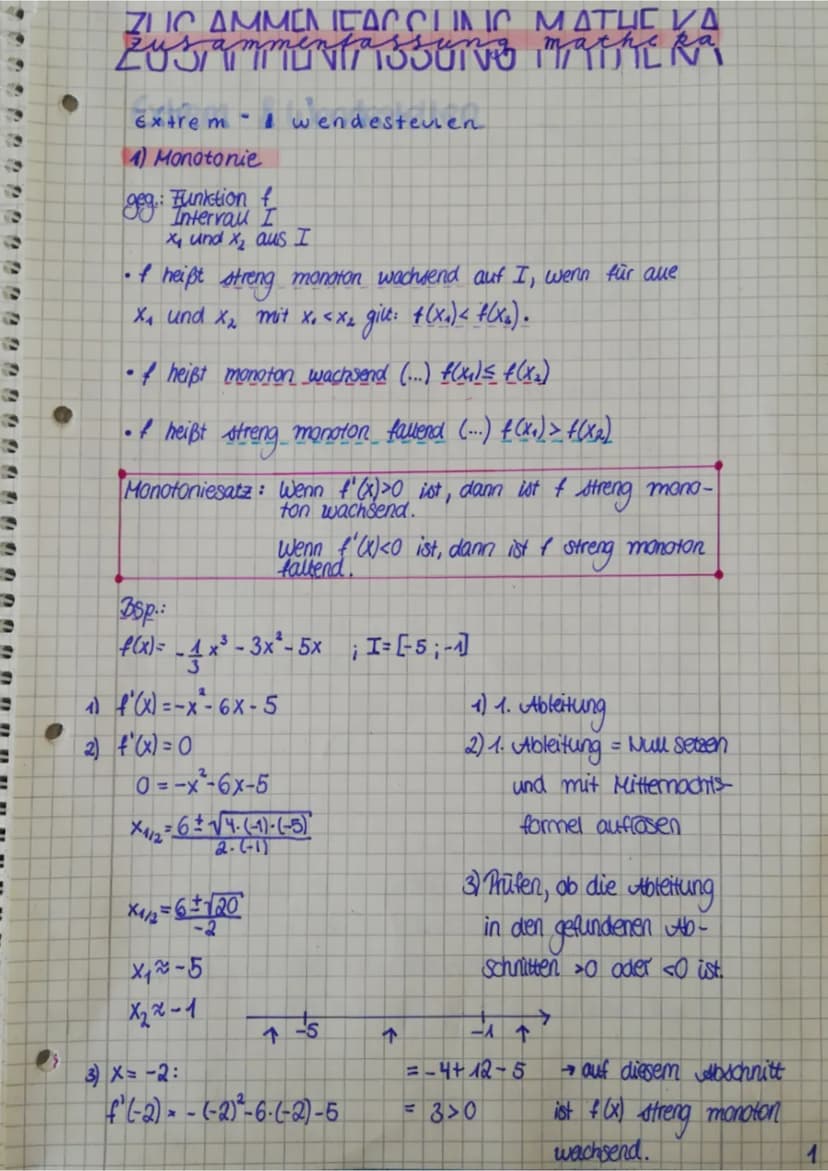 ZUSAMMENFASSUNG MATHE KA
zusammenfassung mathe ka
Extrem - & wendestellen
1) Monotonie
geg.: Funktion f
Intervall I
x₁ und x₂ aus I
• f heißt streng monoton wachsend auf I, wenn für alle
x₁ und x₂ mit x₁ < x₂ gilt: f(x₁) < f(x₂).
• f heißt monoton wachsend (...) f(x₁) ≤ f(x₂)
• f heißt streng monoton fallend (...) f(x₁) > f(x₂)
Monotoniesatz: Wenn f'(x)>0 ist, dann ist f streng mono-
ton wachsend.
Wenn f'(x)<0 ist, dann ist f streng monoton
fallend.
Bsp.:
f(x)= -1/3 x³ - 3x² - 5x ; I=[-5 ; -1]
1) f'(x) = -x² - 6x - 5 1) 1. Ableitung
2) f'(x) = 0 2) 1. Ableitung = Null setzen
0 = -x² - 6x - 5 und mit Mitternachts-
x₁/₂ = 6 ± √4·(-1)·(-5) / 2·(-1) formel auflösen
3) Prüfen, ob die Ableitung
x₁/₂ = 6 ± √20 / -2 in den gefundenen Ab-
x₁ ≈ -5 schnitten >0 oder <0 ist.
x₂ ≈ -1
↑ -5 ↑ -1 ↑
3) x = -2: = -4 + 12 - 5 → auf diesem Abschnitt
f'(-2) = -(-2)² - 6·(-2) - 5 = 3 > 0 ist f(x) streng monoton
wachsend. 1